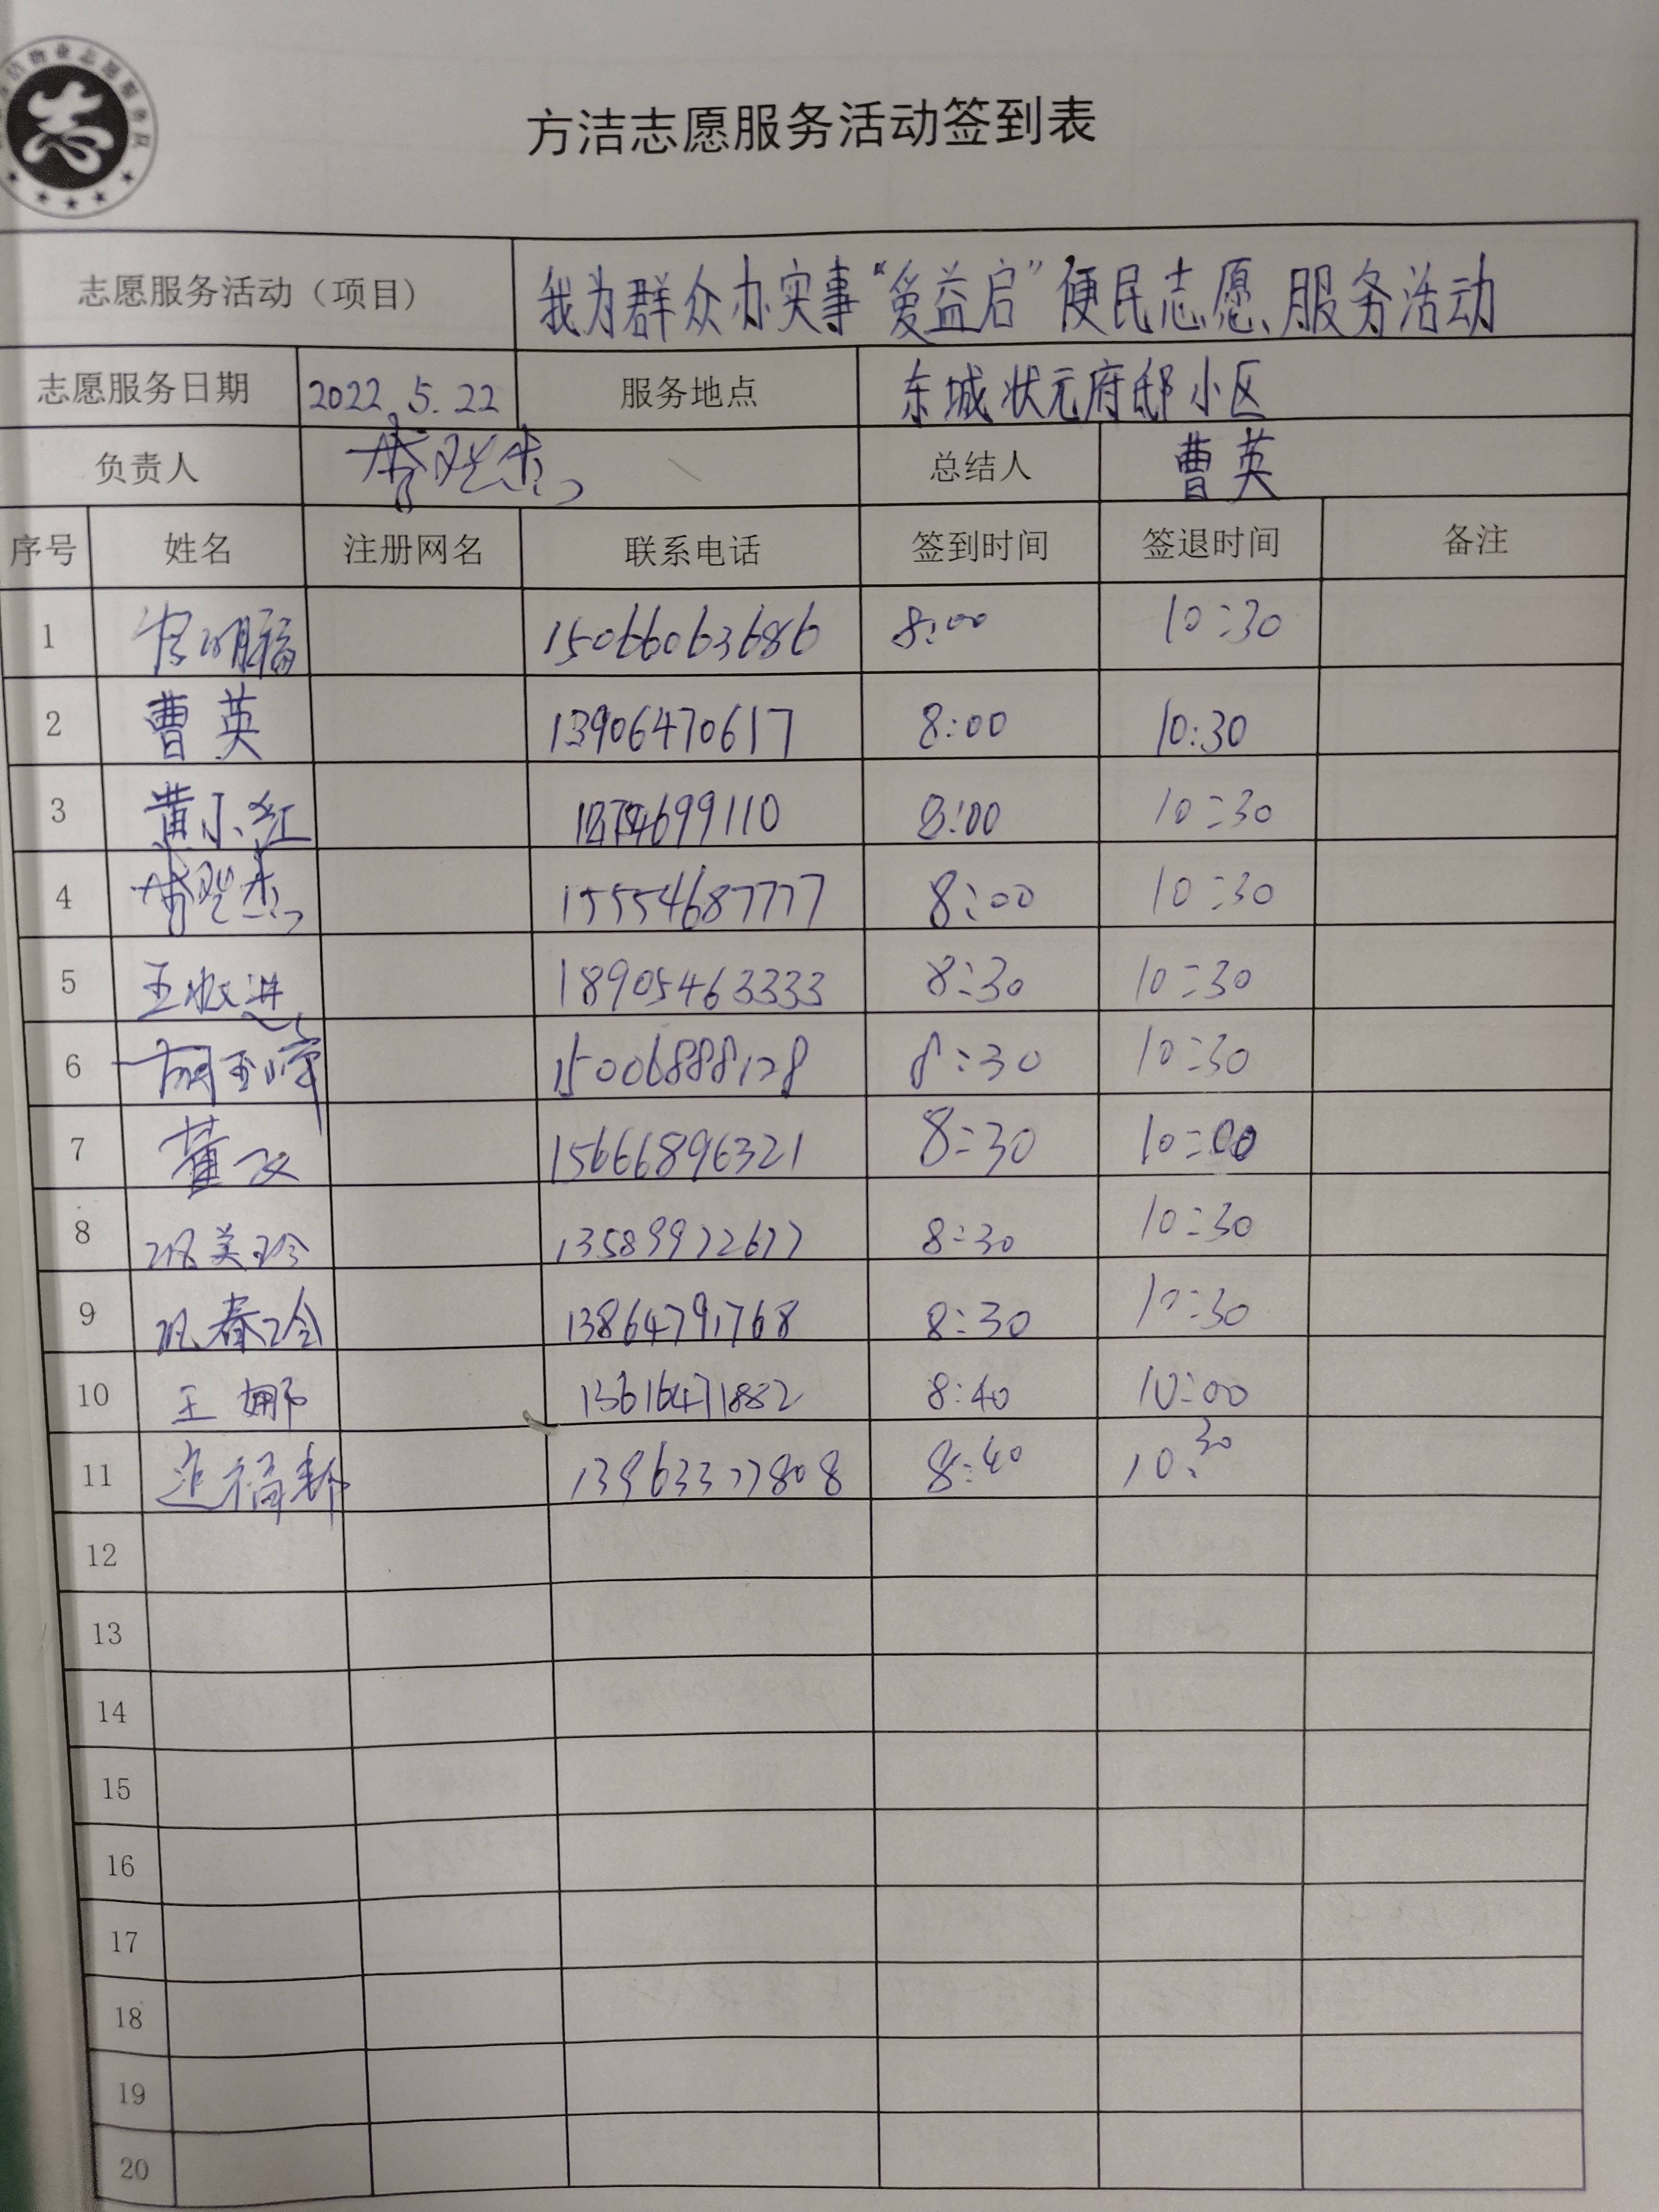 物业志愿服务队
志
方洁志愿服务活动签到表
志愿服务活动（项目） 我为群众办实事“爱益启”便民志愿服务活动
志愿服务日期 2022.5.22 服务地点 东城状元府邸小区
负责人 总结人 曹英
序号 姓名 注册网名 联系电话 签到时间 签退时间 备注
1 15066063686 8:00 10:30
2 曹英 13906470617 8:00 10:30
3 黄小红 8:00 10:30
4 15554687777 8:00 10:30
5 18905463333 8:30 10:30
6 15006888128 8:30 10:30
7 15666896321 8:30 10:00
8 13589972677 8:30 10:30
9 13864791768 8:30 10:30
10 王娜 13616471882 8:40 10:00
11 13963377808 8:40 10:30
12
13
14
15
16
17
18
19
20